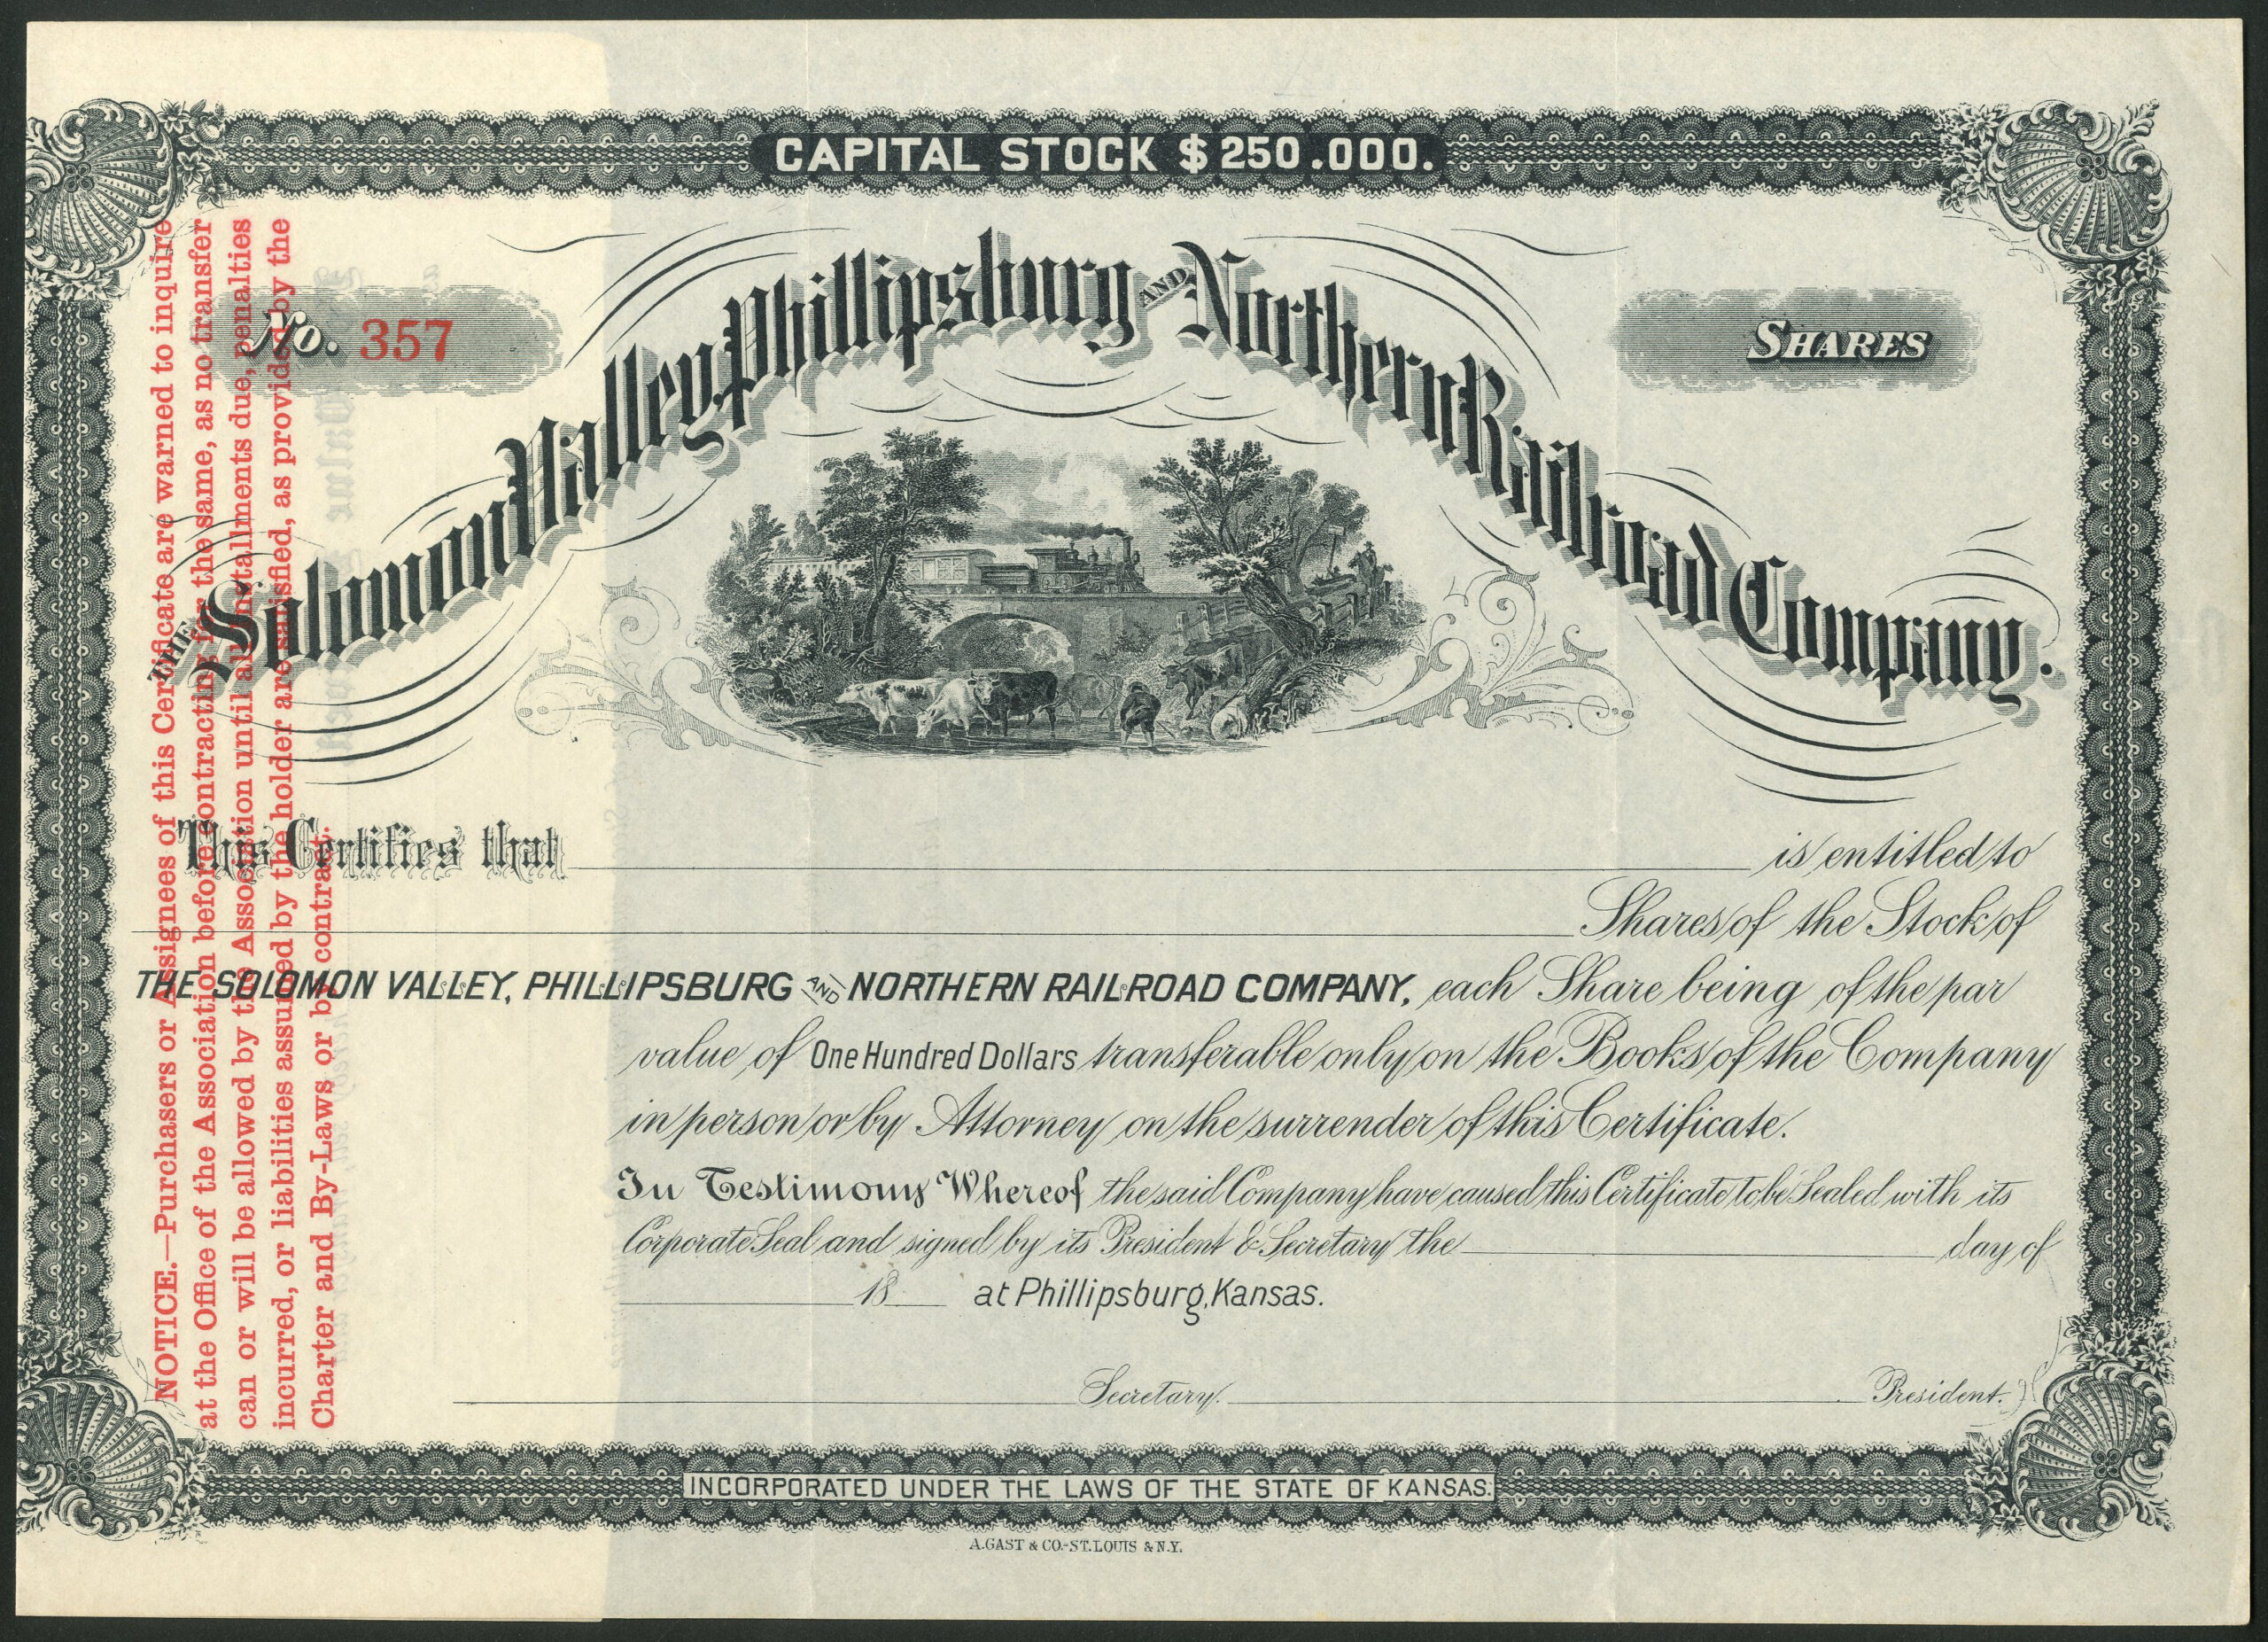 CAPITAL STOCK $250.000.
No. 357
SHARES
THE Solomon Valley, Phillipsburg AND Northern Railroad Company.
This Certifies that is entitled to
Shares of the Stock of
THE SOLOMON VALLEY, PHILLIPSBURG AND NORTHERN RAILROAD COMPANY, each Share being of the par
value of One Hundred Dollars transferable only on the Books of the Company
in person or by Attorney on the surrender of this Certificate.
In Testimony Whereof the said Company have caused this Certificate to be Sealed with its
Corporate Seal and signed by its President & Secretary the day of
18 at Phillipsburg, Kansas.
Secretary. President.
INCORPORATED UNDER THE LAWS OF THE STATE OF KANSAS.
A. GAST & CO.-ST. LOUIS & N.Y.
NOTICE.—Purchasers or Assignees of this Certificate are warned to inquire
at the Office of the Association before contracting for the same, as no transfer
can or will be allowed by the Association until all installments due, penalties
incurred, or liabilities assumed by the holder are satisfied, as provided by the
Charter and By-Laws or by contract.